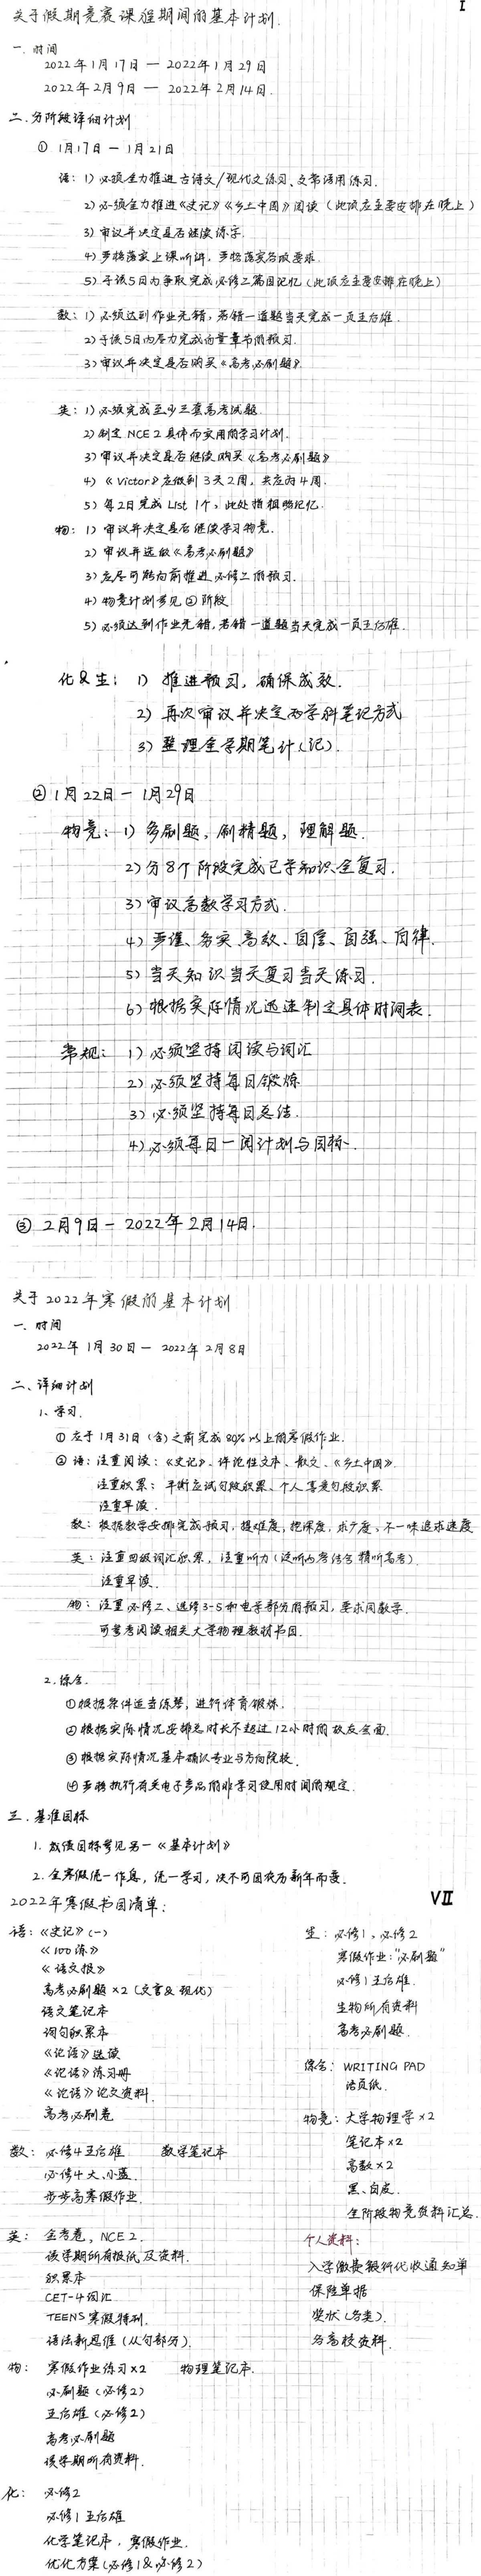 关于假期竞赛课程期间的基本计划.
I
一. 时间
2022年1月17日 — 2022年1月29日
2022年2月9日 — 2022年2月14日.
二. 分阶段详细计划
① 1月17日 — 1月21日
语: 1) 必须全力推进古诗文/现代文练习、文常活用练习.
2) 必须全力推进《史记》《乡土中国》阅读 (此项应主要安排在晚上)
3) 审议并决定是否继续练字.
4) 严格落实上课听讲, 严格落实各项要求.
5) 于该5日内争取完成必修二篇目记忆 (此项应主要安排在晚上)
数: 1) 必须达到作业无错, 若错一道题当天完成一页王后雄.
2) 于该5日内尽力完成向量章节的预习.
3) 审议并决定是否购买《高考必刷题》
英: 1) 必须完成至少三套高考试题.
2) 制定NCE 2 具体而实用的学习计划.
3) 审议并决定是否继续购买《高考必刷题》
4) 《Victor》应做到3天2周, 共应为4周.
5) 每2日完成 List 1个, 此处指粗略记忆.
物: 1) 审议并决定是否继续学习物竞.
2) 审议并选做《高考必刷题》
3) 应尽可能向前推进必修二的预习.
4) 物竞计划参见②阶段
5) 必须达到作业无错, 若错一道题当天完成一页王后雄.
化&生: 1) 推进预习, 确保成效.
2) 再次审议并决定两学科笔记方式
3) 整理全学期笔计(记).
② 1月22日 — 1月29日
物竞: 1) 多刷题, 刷精题, 理解题.
2) 分8个阶段完成已学知识全复习.
3) 审议高数学习方式.
4) 严谨、务实、高效、自信、自强、自律.
5) 当天知识当天复习当天练习.
6) 根据实际情况迅速制定具体时间表.
常规: 1) 必须坚持阅读与词汇
2) 必须坚持每日锻炼
3) 必须坚持每日总结.
4) 必须每日一阅计划与目标.
③ 2月9日 — 2022年2月14日.
关于2022年寒假的基本计划
一. 时间
2022年1月30日 — 2022年2月8日
二、详细计划
1. 学习.
① 应于1月31日(含)之前完成80%以上的寒假作业.
② 语: 注重阅读: 《史记》、评论性文本、散文、《乡土中国》.
注重积累: 平衡应试句段积累、个人喜爱句段积累
注重早读.
数: 根据数学安排完成预习, 提难度, 把深度, 求广度, 不一味追求速度
英: 注重四级词汇积累, 注重听力 (泛听为考结合精听高考).
注重早读.
物: 注重必修2、选修3-5和电学部分的预习, 要求同数学.
可参考阅读相关大学物理教材书目.
2. 综合.
① 根据条件适当练琴, 进行体育锻炼.
② 根据实际情况安排总时长不超过12小时的校友会面.
③ 根据实际情况基本确认专业与方向院校.
④ 严格执行有关电子产品的非学习使用时间的规定.
三. 基准目标
1. 成绩目标参见另一《基本计划》
2. 全寒假统一作息, 统一学习, 决不可因农历新年而变.
2022年寒假书目清单:
VII
语: 《史记》(一)
《100练》
《语文报》
高考必刷题×2 (文言&现代)
语文笔记本
词句积累本
《论语》选读
《论语》练习册
《论语》论文资料.
高考必刷卷
数: 必修4王后雄 数学笔记本
必修4大、小蓝.
步步高寒假作业.
英: 金考卷, NCE 2.
该学期所有报纸及资料.
积累本
CET-4词汇
TEENS寒假特刊.
语法新思维 (从句部分).
物: 寒假作业练习×2 物理笔记本.
必刷题 (必修2)
王后雄 (必修2)
高考必刷题
该学期所有资料.
化: 必修2
必修1王后雄
化学笔记本, 寒假作业.
优化方案 (必修1&必修2)
生: 必修1, 必修2
寒假作业: "必刷题"
必修1王后雄.
生物所有资料
高考必刷题.
综合: WRITING PAD
活页纸.
物竞: 大学物理学×2
笔记本×2
高数×2
黑、白皮.
全阶段物竞资料汇总.
个人资料:
入学缴费银行代收通知单
保险单据
奖状 (各类).
各高校资料.